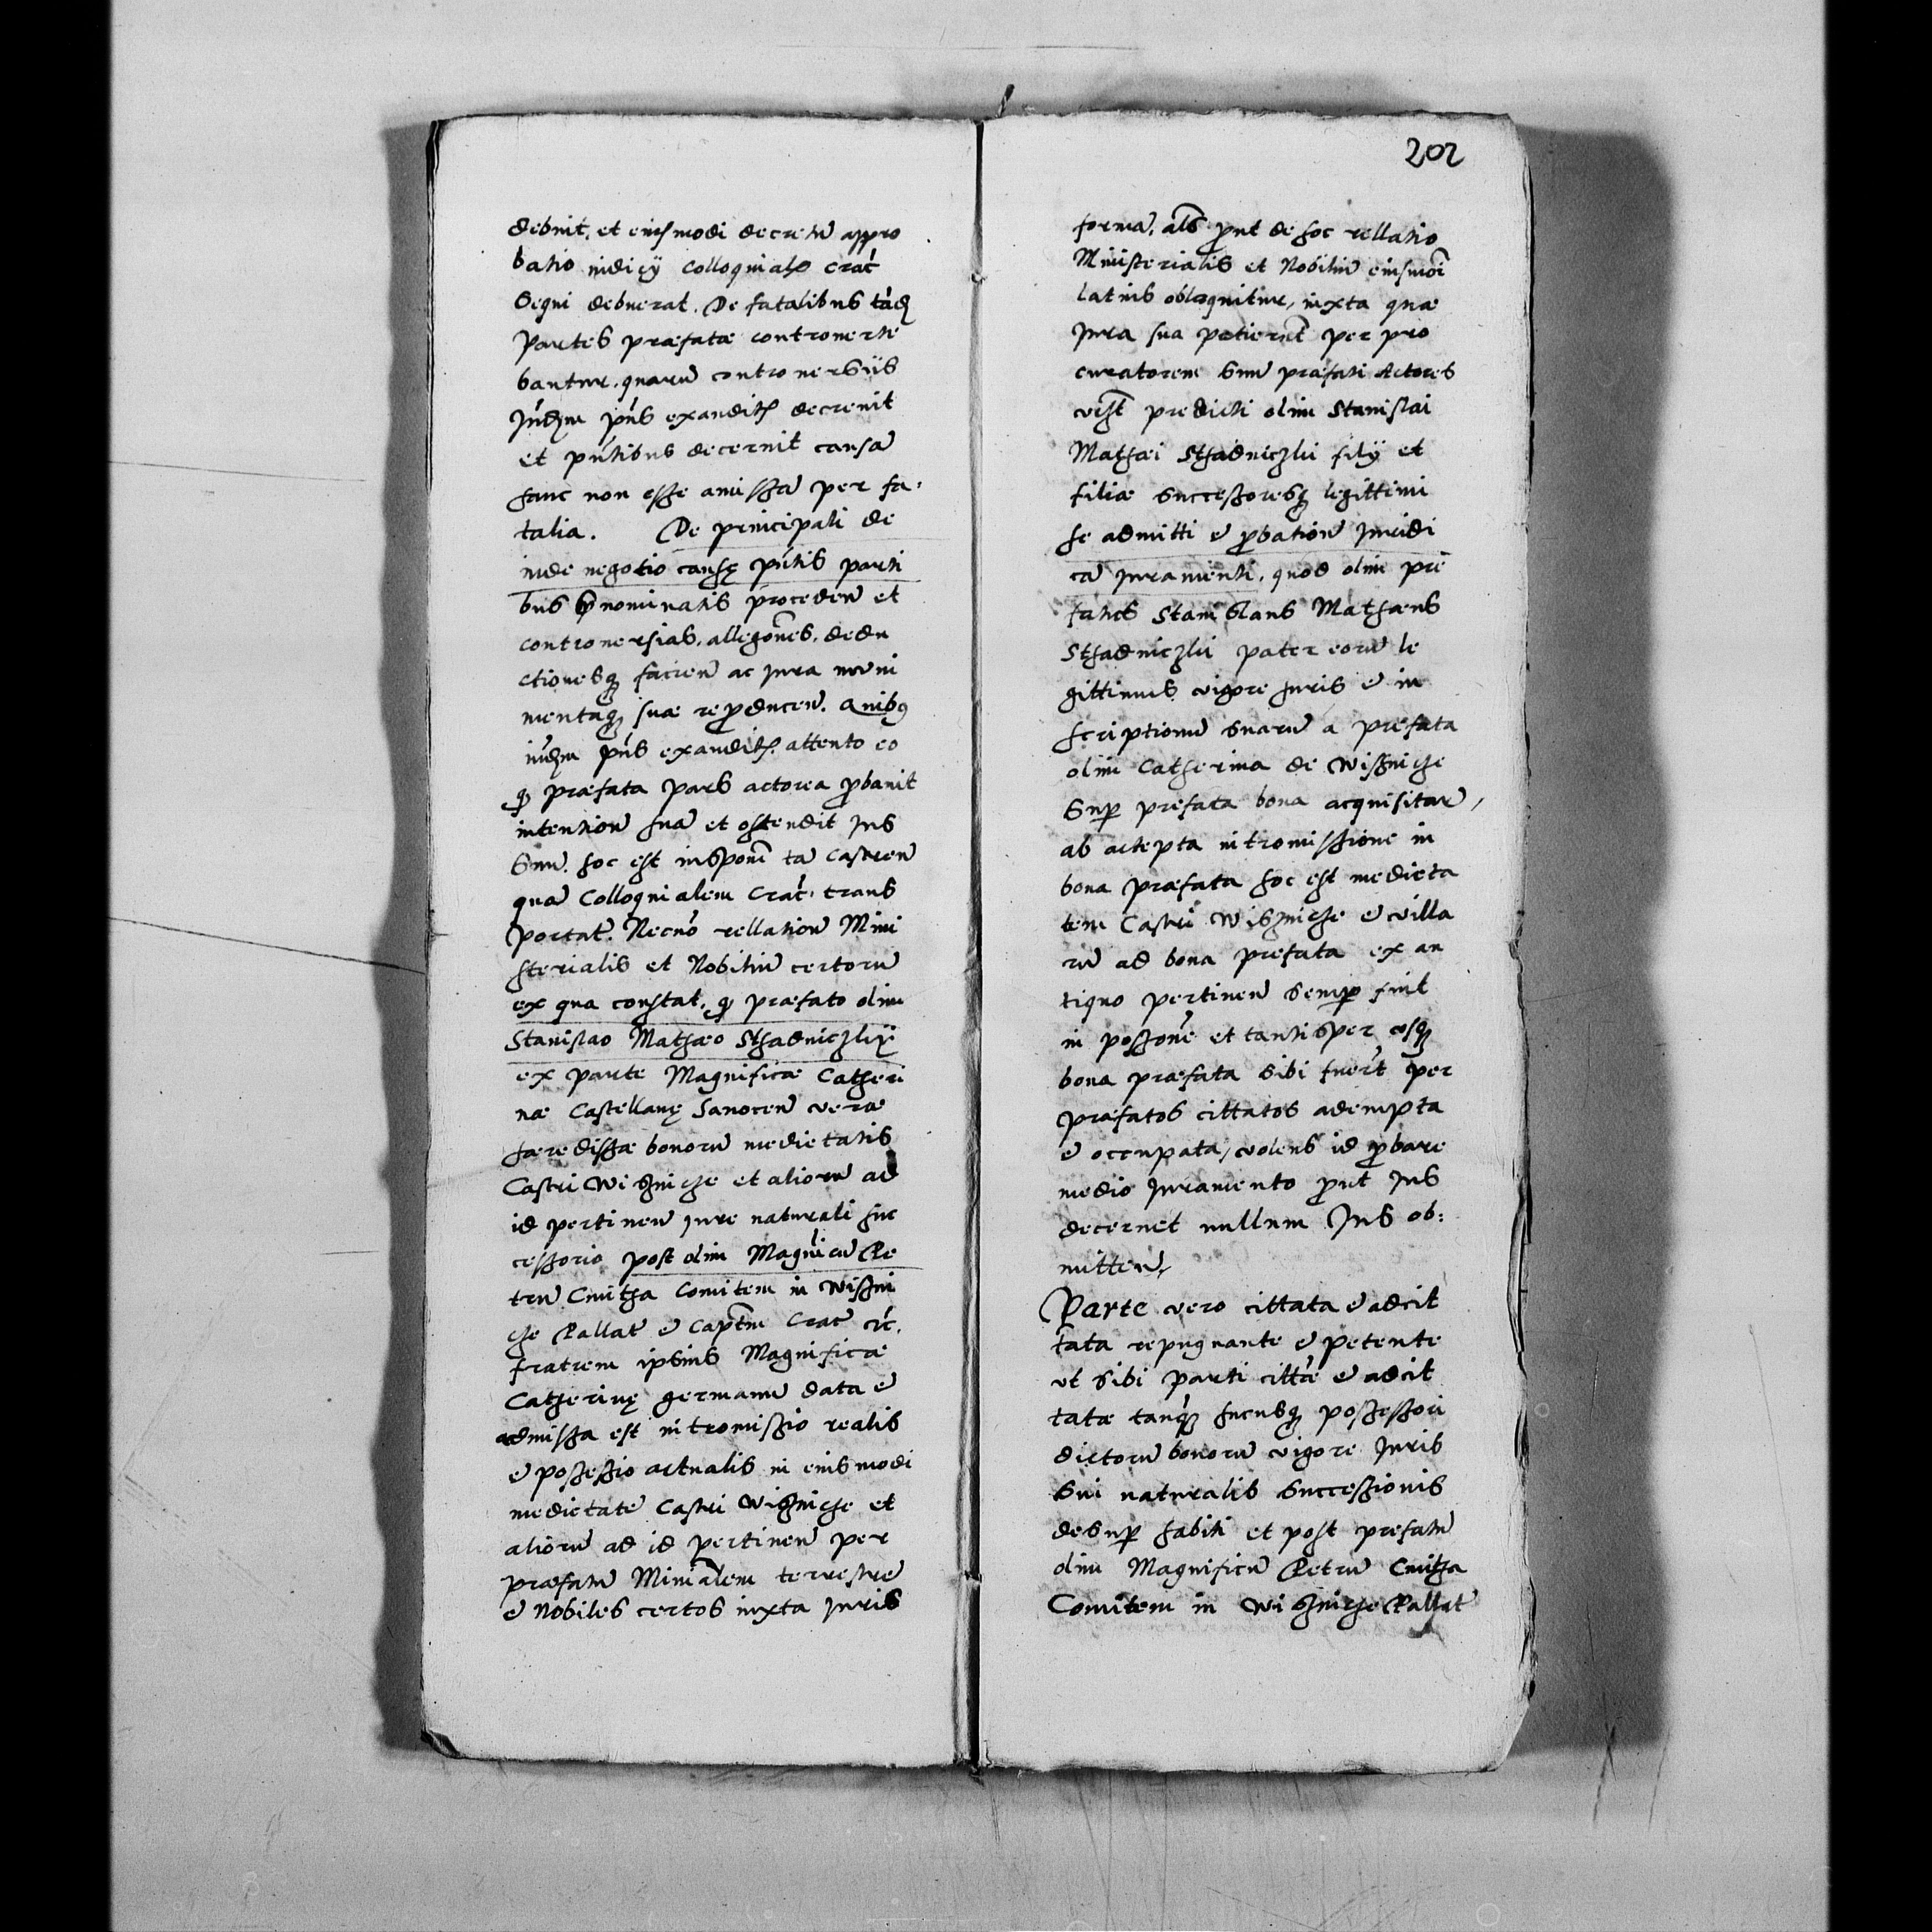 debuit, et eiusmodi decretũ appro
batio iudicij Colloquialis Crac̃
Sequi debuerat. De fatalibus tãd
Partes præfatæ controuerte
bantur, quarũ controuersiis
Judm̃ pñs exauditis decreuit
et pñtibus decernit causã
hanc non esse amissã per fa,
talia. De principali de
inde negotio causę pñtis parti
bus pnominatis proceden̄ et
controuersias, allegoñes, dedu
ctionesq facien̄ ac Jura muni
mentaq suæ reproducen̄. Quibq
iudm̃ pñs exauditis attento eo
q præfata pars actorea probauit
intention̄ suã et ostendit Jus
Suũ. hoc est inspoñe tã Castren̄
quã Colloquialem Crac̃, trans
portat̃. Necnõ rellation̄ Mini
sterialis et Nobiliũ certorũ
ex qua constat, q præfato olim
Stanislao Mathæo Sthadniczkij
ex parte Magnificæ Catheri
næ Castellanę Sanocen̄ veræ
hæredissæ bonorũ medietatis
Castri Wisznicze et aliorũ ad
id pertinen̄ Jure naturali suc
cessorio post olim Magnicũ Pe
trũ Cmitha Comitem in Wiszni
cze Pallat̃ e Captm̃ Crac̃ etc̃.
fratrem ipsius Magnificæ
Catherinę germanũ data e
admissa est intromissio realis
e possessio actualis in eiusmodi
medietatẽ Castri Wisznicze et
aliorũ ad id pertinen̄ per
præfatũ Miniãlem terrestrẽ
e Nobiles certos iuxta Juris
202
formã, als̃ prut de hoc rellatio
Ministerialis et Nobiliũ eiusmõi
latius obloquitur, iuxta quæ
Jura sua petierũt per pro
curatorem Suũ præfati Actores
vc̃zt predicti olim Stanislai
Mathæi Sthadniczki filij et
filiæ Successoresq legittimi
se admitti e probation̄ Juridi
cã Juramenti, quod olim præ
fatus Stanislaus Mathæus
Sthadniczki pater eorũ le
gittimus vigore Juris e in
scriptionũ suarũ a præfata
olim Catherina de Wisznicze
Sup præfata bona acquisitarũ,
ab accepta intromissione in
bona præfata hoc est medieta
tem Castri Wisznicze e villa
rũ ad bona præfata ex an
tiquo pertinen̄ Semp fuit
in possoñe et tantisper vsq
bona præfata sibi fuerũt per
præfatos cittatos adempta
e occupata, volens id probare
medio Juramento prut Jus
decernet nullum Jus ob:
mitten̄,
Parte vero cittata e adcit
tata repugnante e petente
vt sibi parti cittæ e adcit
tatæ tanq̃ hucusq possessori
dictorũ bonorũ vigore Juris
Sui naturalis Successionis
desup habiti et post præfatũ
olim Magnificũ Petrũ Cmitha
Comitem in Wisznicze Pallat̃